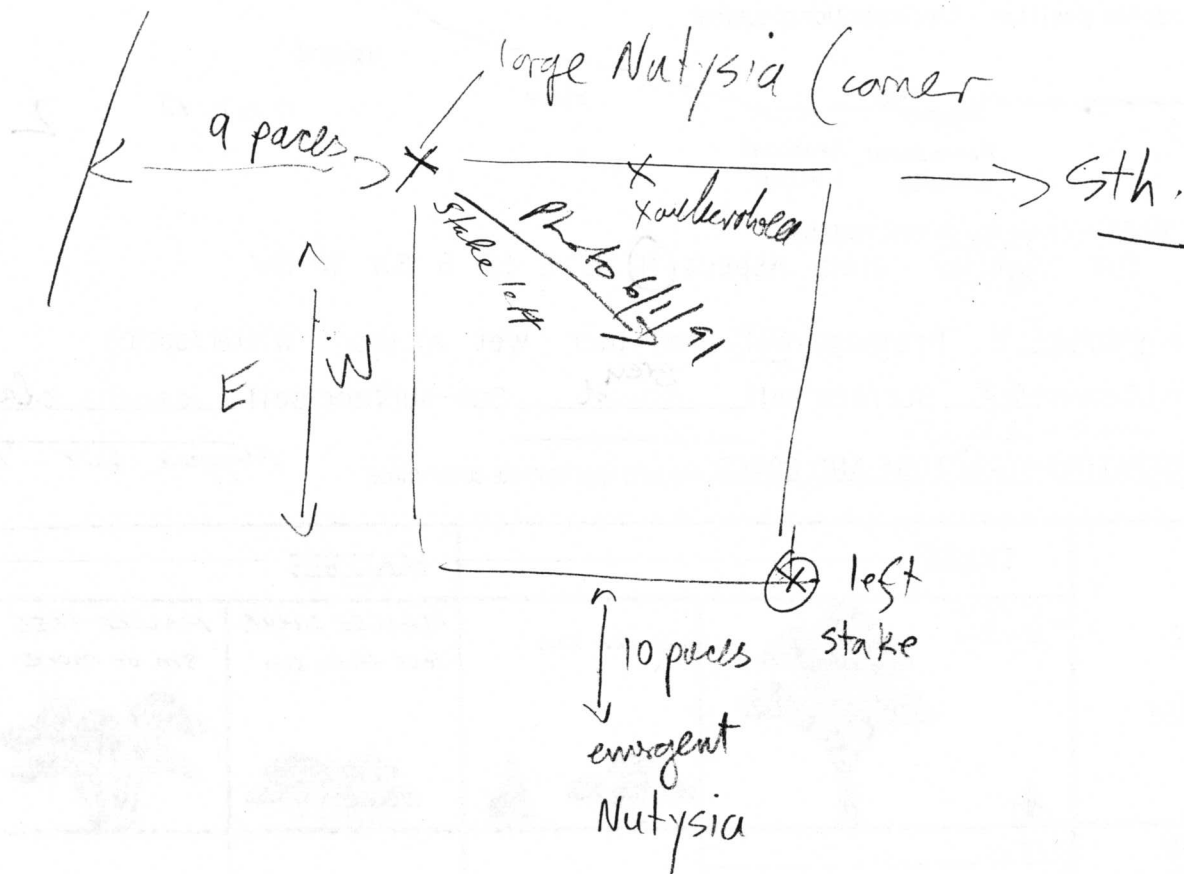 large Nutysia (corner
9 paces
Sth.
Stake left
Photo 6/1/91
E
W
left
stake
10 paces
emergent
Nutysia